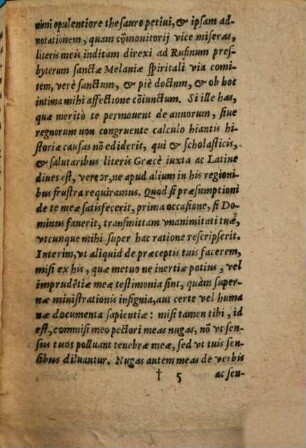 nimi opulentiore thesauro petiui, & ipsam ad-
notationem, quam cõmonitorij vice miseras,
literis meis inditam direxi ad Rufinum pres-
byterum sanctæ Melaniæ spiritali via comi-
tem, verè sanctum, & piè doctum, & ob hoc
intima mihi affectione cõiunctum. Si ille has,
quæ meritò te permouent de annorum, siue
regnorum non congruente calculo hiantis hi-
storiæ causas nõ ediderit, qui & scholasticis,
& salutaribus literis Græcè iuxta ac Latinè
diues est, vereor, ne apud alium in his regioni-
bus frustra requiramus. Quod si præsumptioni
de te meã satisfecerit, prima occasione, si Do-
minus fauerit, transmittam vnanimitati tuæ,
vtcunque mihi super hac ratione rescripserit.
Interim, vt aliquid de præceptis tuis facerem,
misi ex his, quæ metuo ne inertiæ potius, vel
imprudẽtiæ meæ testimonia sint, quàm super-
næ ministrationis insignia, aut certe vel huma
næ documenta sapientiæ: misi tamen tibi, id
est, commisi meo pectori meas nugas, nõ vt sen-
sus tuos polluant tenebræ meæ, sed vt tuis sen-
sibus diluantur. Nugas autem meas de verbis
† 5 ac sen-